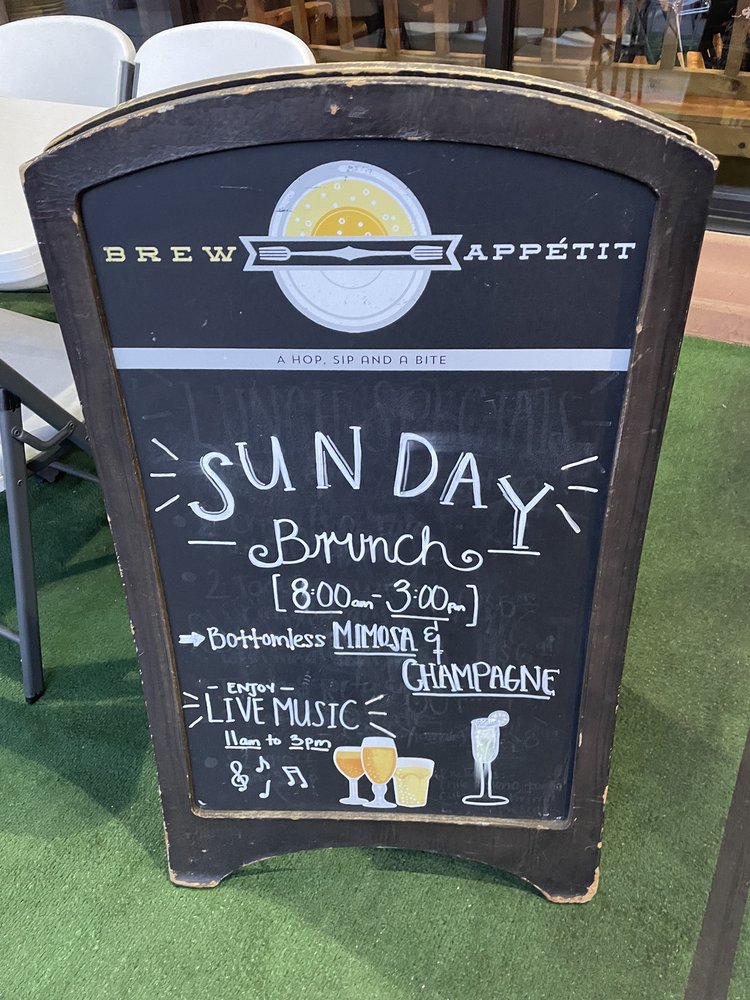 BREW APPÉTIT
A HOP, SIP AND A BITE
LUNCH SPECIALS
SUNDAY
Brunch
[8:00am-3:00pm]
Bottomless MIMOSA &
CHAMPAGNE
- ENJOY -
LIVE MUSIC
11am to 3pm